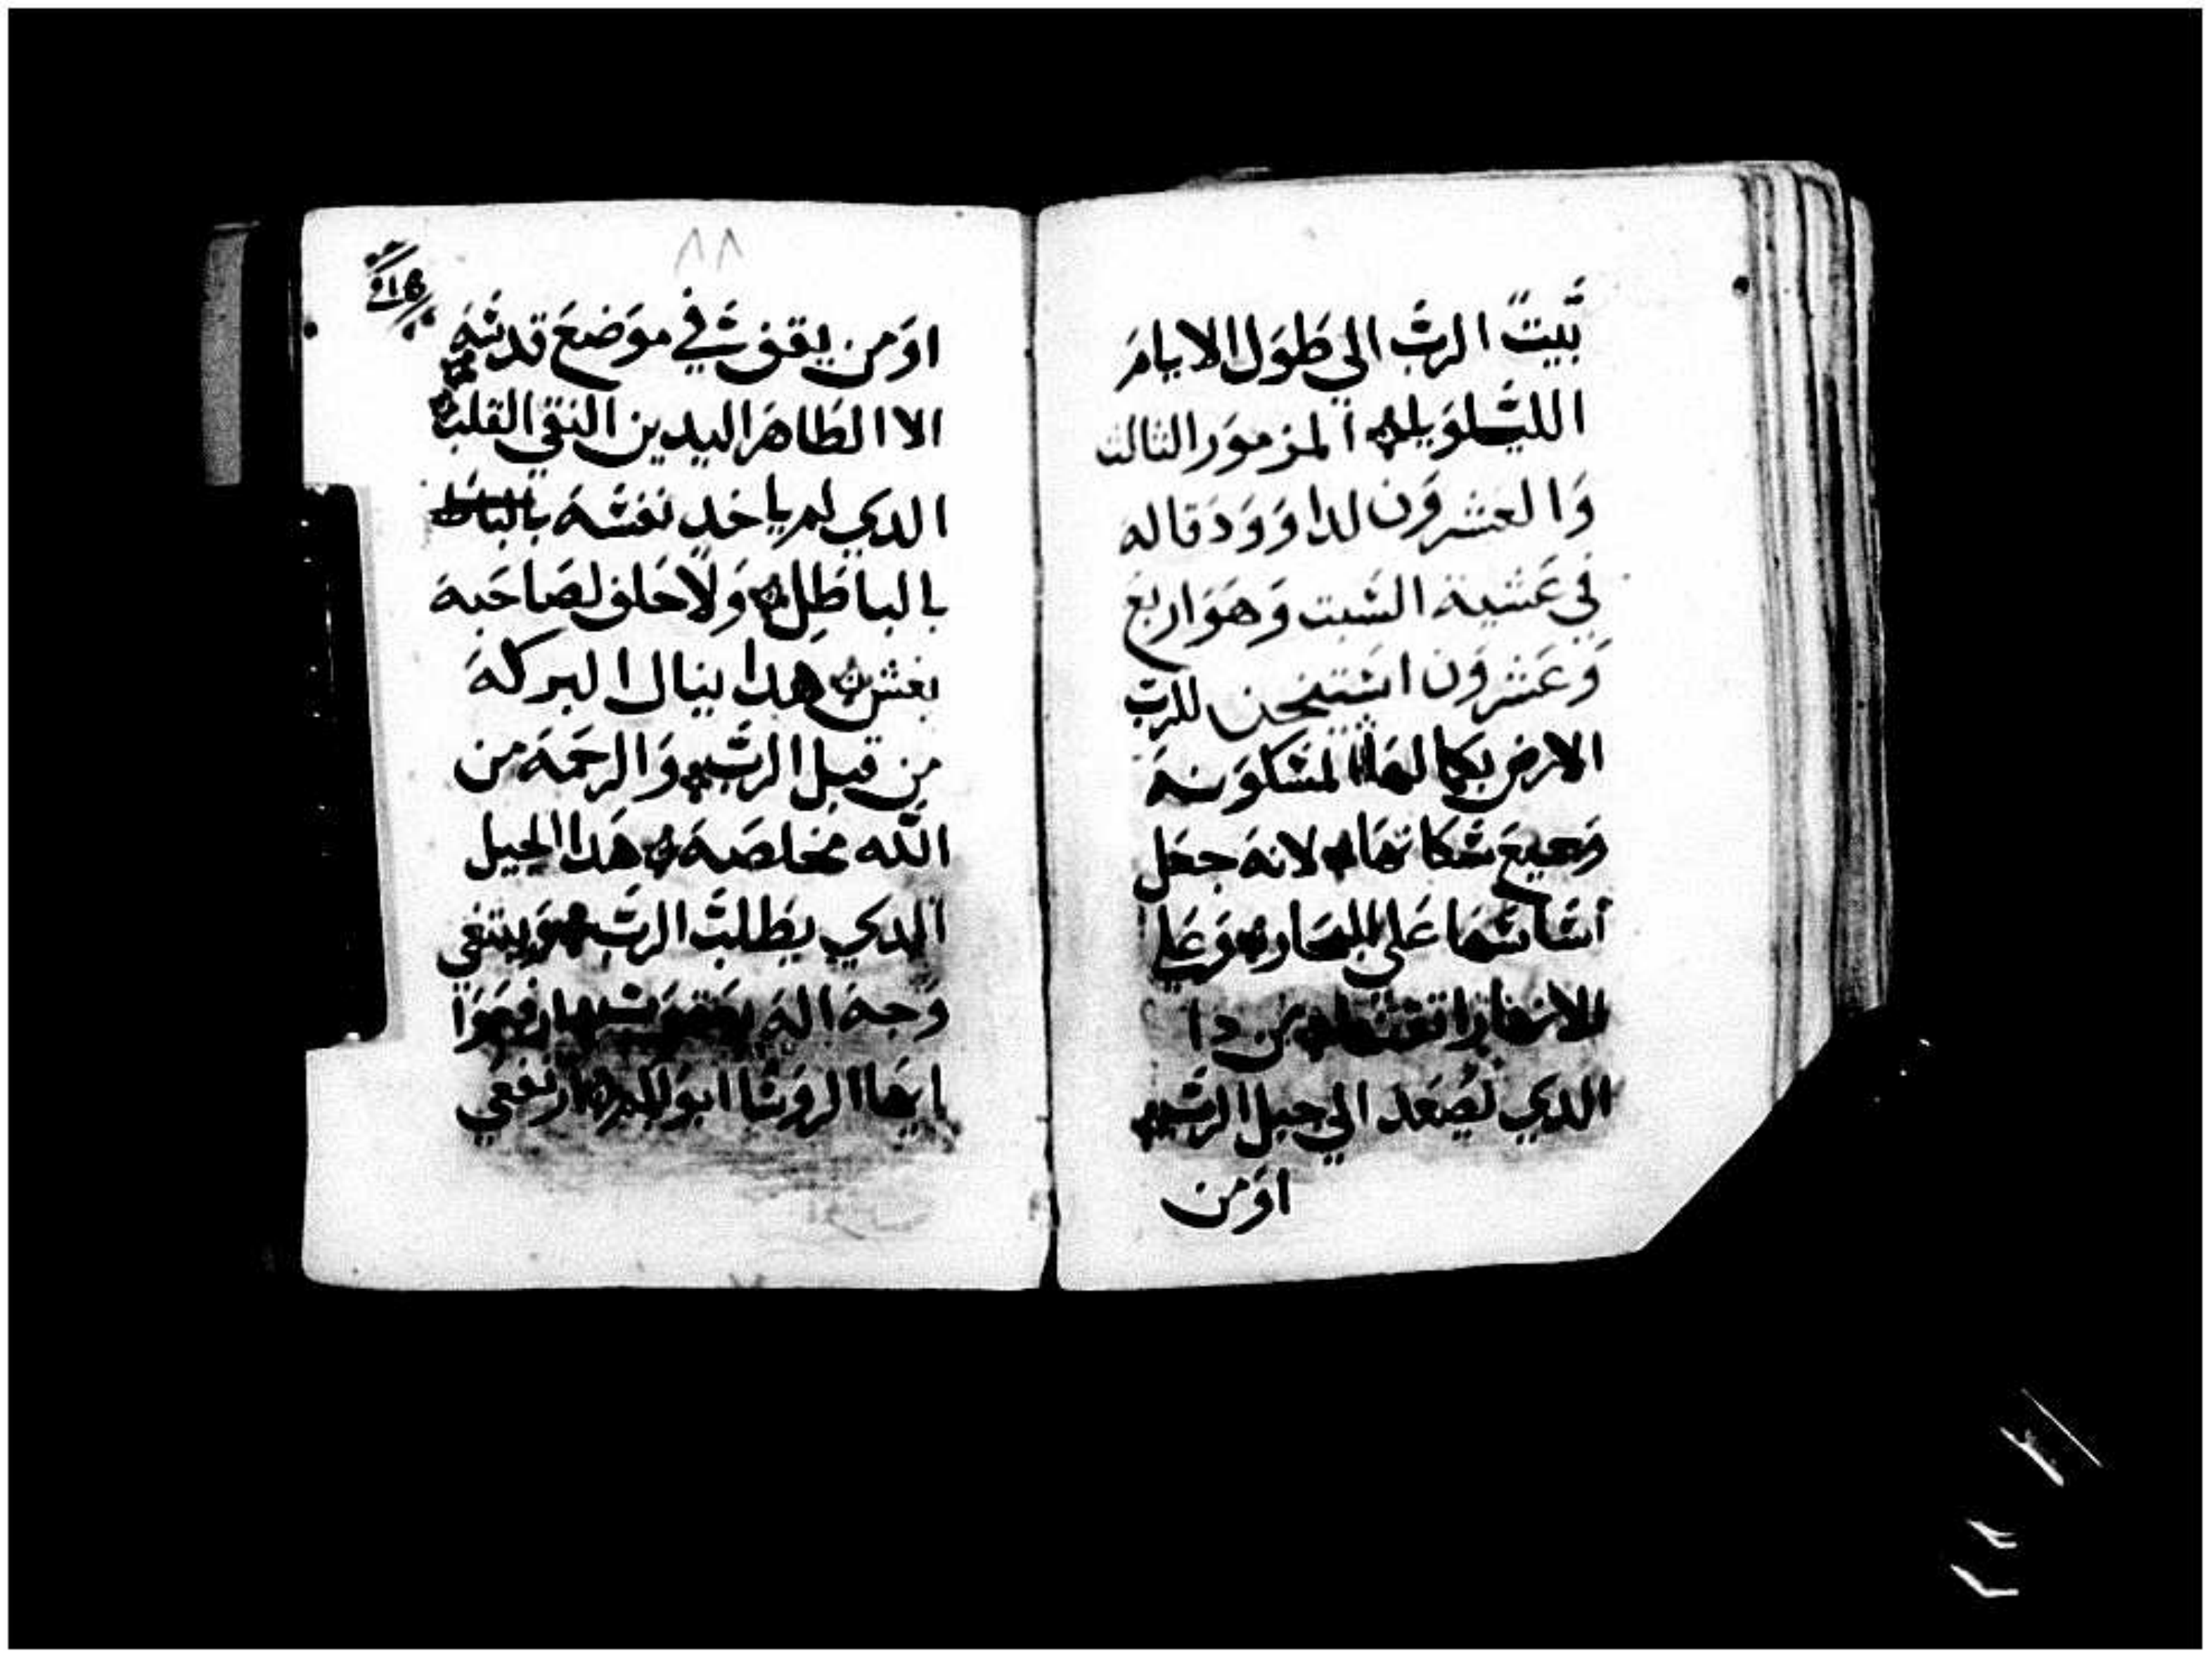 بيت الرب الي طول الايام
الليلويا المزمور الثالث
والعشرون لداوود قاله
في عشية السبت وهو اربع
وعشرون استيخن للرب
الارض بكمالها المسكونه
وجميع سكانها لانه جعل
اساسها على البحار وعلي
الانهار اتقنها من دا
الدي يصعد الي جبل الرب
اومن
٨٨
اومن يقف في موضع قدسه
الا الطاهر اليدين النقي القلب
الدي لم ياخد نفسه
بالباطل ولا حلف لصاحبه
بغش هدا ينال البركه
من قبل الرب والرحمه من
الله مخلصه هدا الجيل
الدي يطلب الرب ويبتغي
وجه اله يعقوب ارفعوا
ايها الروسا ابوابكم ارتفعي